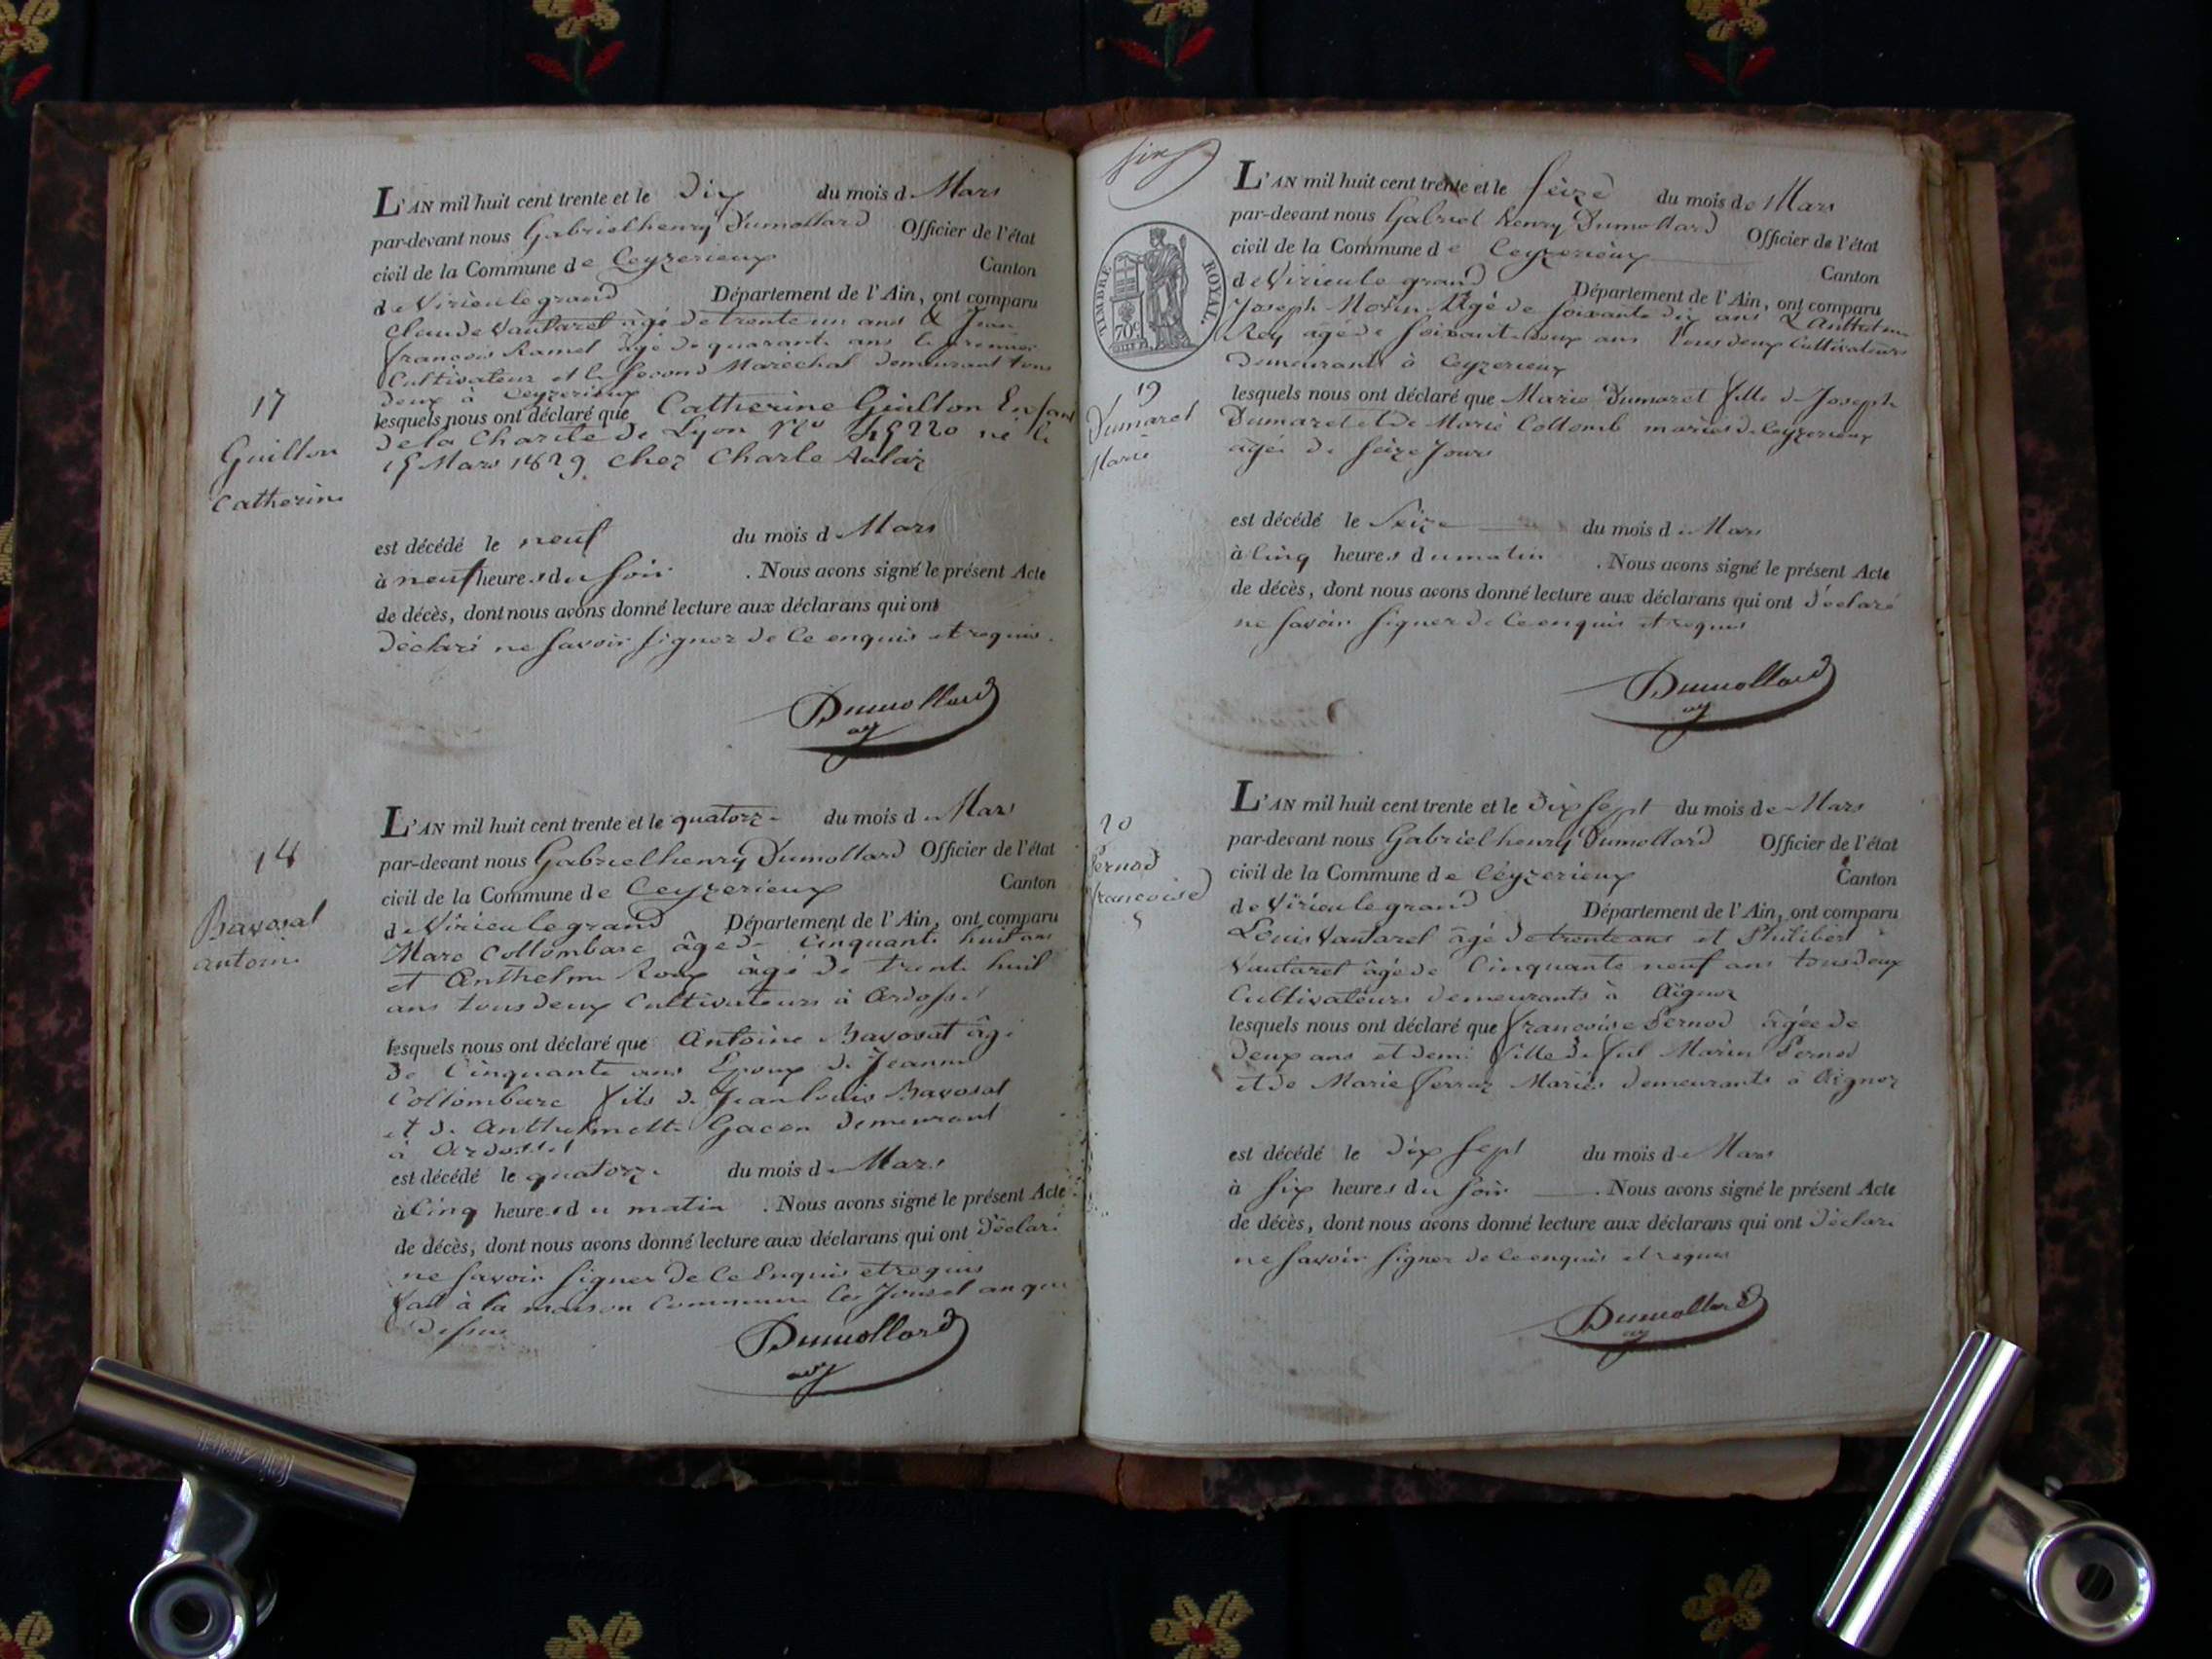 L'AN mil huit cent trente et le Dix du mois de Mars
par-devant nous Gabriel henry Dumollard Officier de l'état
civil de la Commune de Ceyzerieux Canton
de Virieu le grand Département de l'Ain, ont comparu
Claude Vautaret âgé de trente un ans & Jean
françois Ramel âgé de quarante ans le premier
Cultivateur et le second Maréchal demeurant tous
deux à Ceyzerieux
17
Guillon
Catherine
lesquels nous ont déclaré que Catherine Guillon Enfant
de la Charité de Lyon né le
15 Mars 1829 chez Charle
est décédé le neuf du mois de Mars
à neuf heures du soir . Nous avons signé le présent Acte
de décès, dont nous avons donné lecture aux déclarans qui ont
déclaré ne savoir signer de Ce enquis et requis.
Dumollard
L'AN mil huit cent trente et le quatorze du mois de Mars
par-devant nous Gabriel henry Dumollard Officier de l'état
civil de la Commune de Ceyzerieux Canton
de Virieu le grand Département de l'Ain, ont comparu
18
Bavosat
antoine
Marc Collombare âgé de Cinquante huit ans
et Anthelme Roux âgé de trente huit
ans tous deux Cultivateurs à Ardosset
lesquels nous ont déclaré que Antoine Bavosat âgé
de Cinquante ans Epoux de Jeanne
Collombare fils de Jean louis Bavosat
et de Anthelmette Gacon demeurant
à Ardosset
est décédé le quatorze du mois de Mars
à Cinq heures du matin . Nous avons signé le présent Acte
de décès, dont nous avons donné lecture aux déclarans qui ont déclaré
ne savoir signer de Ce Enquis et requis
fait à la maison Commune les Jour et an que
dessus
Dumollard
six
L'AN mil huit cent trente et le seize du mois de Mars
par-devant nous Gabriel henry Dumollard Officier de l'état
civil de la Commune de Ceyzerieux Canton
de Virieu le grand Département de l'Ain, ont comparu
TIMBRE ROYAL.
70c
Joseph Morin Agé de soixante dix ans & Anthelme
Rey âgé de soixante deux ans tous deux Cultivateurs
demeurants à Ceyzerieux
19
Dumaret
Marie
lesquels nous ont déclaré que Marie Dumaret fille de Joseph
Dumaret et de Marie Collomb mariés de Ceyzerieux
agée de seize Jours
est décédé le seize du mois de Mars
à Cinq heures du matin . Nous avons signé le présent Acte
de décès, dont nous avons donné lecture aux déclarans qui ont déclaré
ne savoir signer de Ce enquis et requis
Dumollard
L'AN mil huit cent trente et le dix sept du mois de Mars
par-devant nous Gabriel henry Dumollard Officier de l'état
civil de la Commune de Céyzerieux Canton
de Virieu le grand Département de l'Ain, ont comparu
20
Pernod
françoise
5
Louis Vautaret âgé de trente ans et Philibert
Vautaret âgé de Cinquante neuf ans tous deux
Cultivateurs demeurants à Aignoz
lesquels nous ont déclaré que françoise Pernod âgée de
deux ans et demi fille de Marin Pernod
et de Marie Ferraz Mariés demeurants à Aignoz
est décédé le dix sept du mois de Mars
à six heures du soir . Nous avons signé le présent Acte
de décès, dont nous avons donné lecture aux déclarans qui ont déclaré
ne savoir signer de Ce enquis et requis
Dumollard